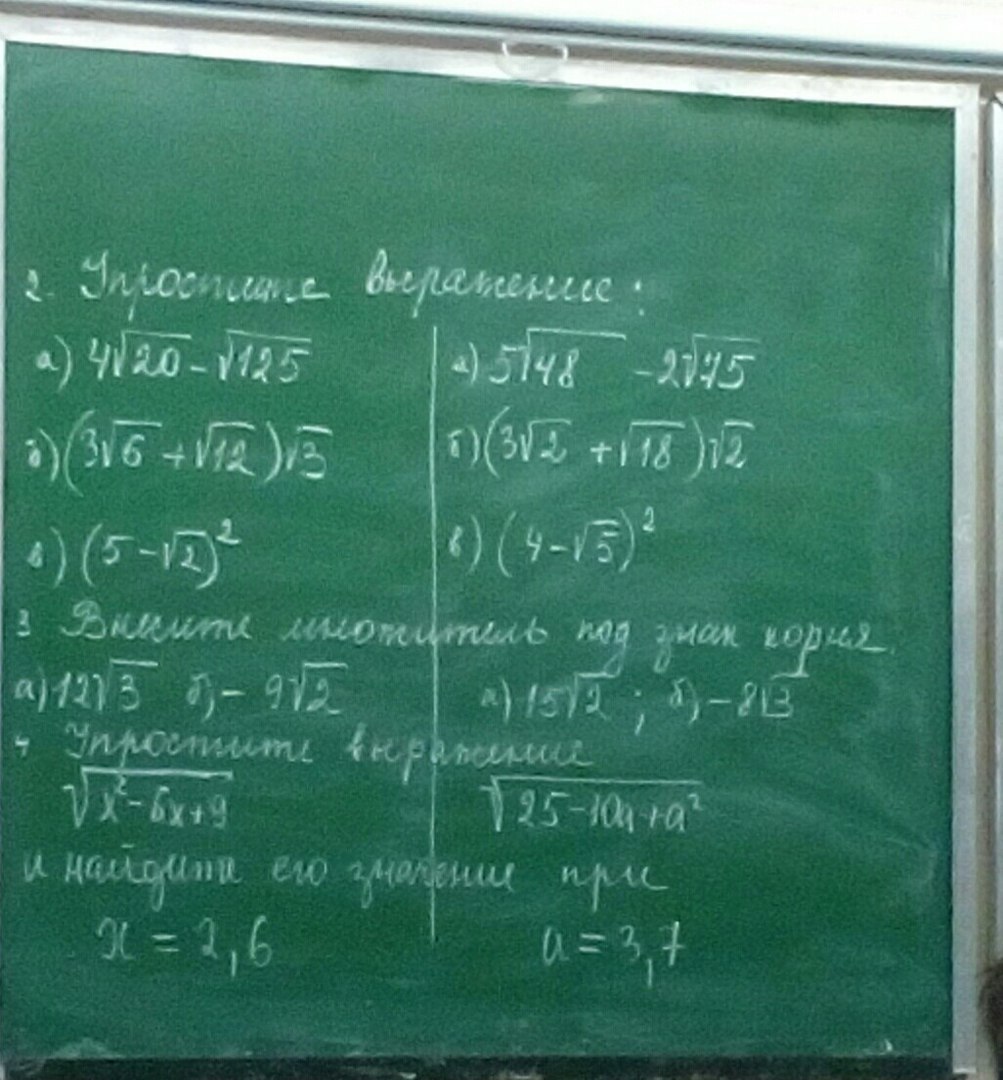 2. Упростите выражение:
а) 4√20 - √125 а) 5√48 - 2√75
б) (3√6 + √12)√3 б) (3√2 + √18)√2
в) (5 - √2)² в) (4 - √5)²
3 Внесите множитель под знак корня.
а) 12√3 б) - 9√2 а) 15√2 ; б) - 8√3
4 Упростите выражение
√x² - 6x + 9 √25 - 10a + a²
и найдите его значение при
x = 2,6 a = 3,7